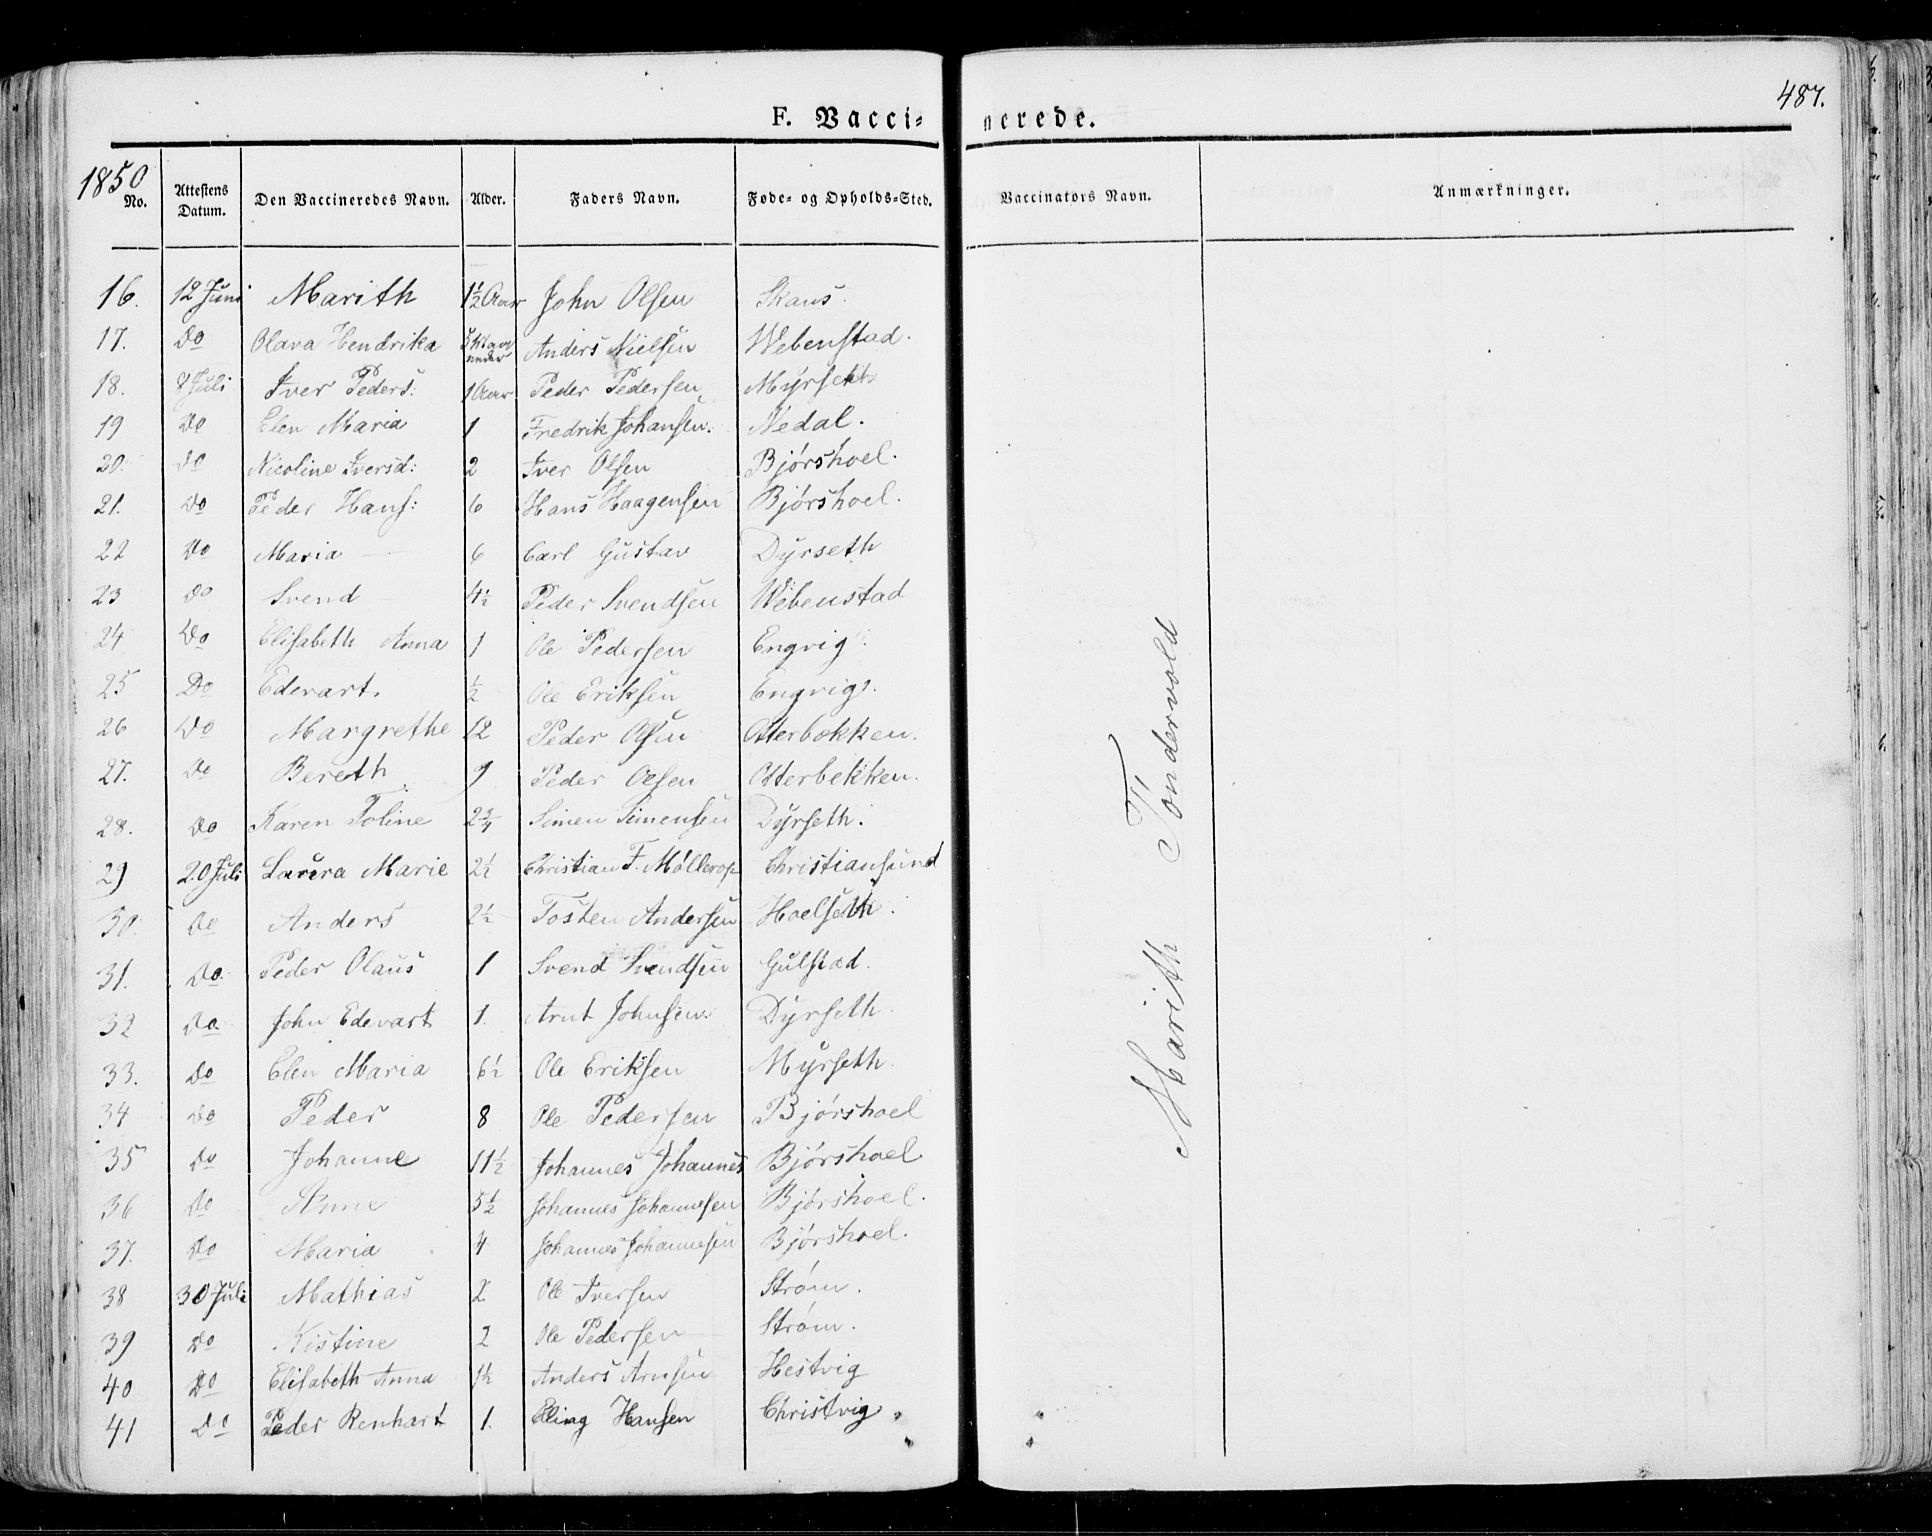 487.
F. Vacci- nerede.
1850
No. Attestens Datum. Den Vaccineredes Navn. Alder. Faders Navn. Føde- og Opholds-Sted. Vaccinators Navn. Anmærkninger.
16. 12 Juni Marith 1½ Aar John Olsen Skaus.
17. Do Olava Hendrika Anders Nielsen Webenstad.
18. 8 Juli Iver Peders: 1 Aar Peder Pedersen Myrseth
19 Do Elen Maria 1 Fredrik Johansen. Nedal.
20. Do Nicoline Iversd: 2 Iver Olsen Bjørshoel.
21. Do Peder Hans: 6 Hans Haagensen Bjørshoel.
22 Do Maria 6 Carl Gustav Dyrseth
23 Do Svend 4½ Peder Svendsen Webenstad
24 Do Elisabeth Anna 1 Ole Pedersen Engvig
25 Do Edevart. ½ Ole Eriksen Engvig.
26 Do Margrethe 12 Peder Olsen Otterbekken.
27. Do Bereth 9 Peder Olsen Otterbekken.
28. Do Karen Toline 2¾ Simen Simensen Dyrseth.
29 20 Juli Laura Marie 2½ Christian F. Møllerop Christiansund
30. Do Anders 2½ Tosten Andersen Hoelseth.
31. Do. Peder Olaus 1 Svend Svendsen Gulstad.
32 Do John Edevart 1. Arnt Johnsen. Dyrseth.
33. Do Elen Maria 6½ Ole Eriksen Myrseth.
34 Do Peder 8 Ole Pedersen Bjørshoel
35 Do Johanne 11½ Johannes Johannes Bjørshoel.
36 Do Anne 5½ Johannes Johannesen Bjørshoel.
37. Do Maria 4 Johannes Johannesen Bjørshoel.
38 30 Juli Mathias 2 Ole Iversen Strøm.
39 Do Kistine 2 Ole Pedersen Strøm.
40 Do Elisabeth Anna 1½ Anders Arnsen Hestvig
41 Do Peder Renhart 1. Elling Hansen Christvig.
Marith Tøndervold